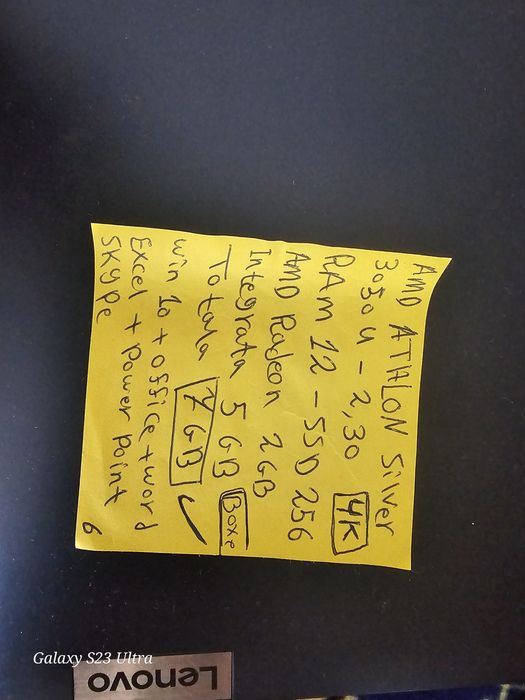 AMD ATHLON Silver
3050U - 2,30 4K
RAM 12 - SSD 256
AMD Radeon 2GB
Integrata 5 GB Boxe
Totala 7GB ✓
Win 10 + office + word
Excel + Power Point
Skype 6
Galaxy S23 Ultra
Lenovo